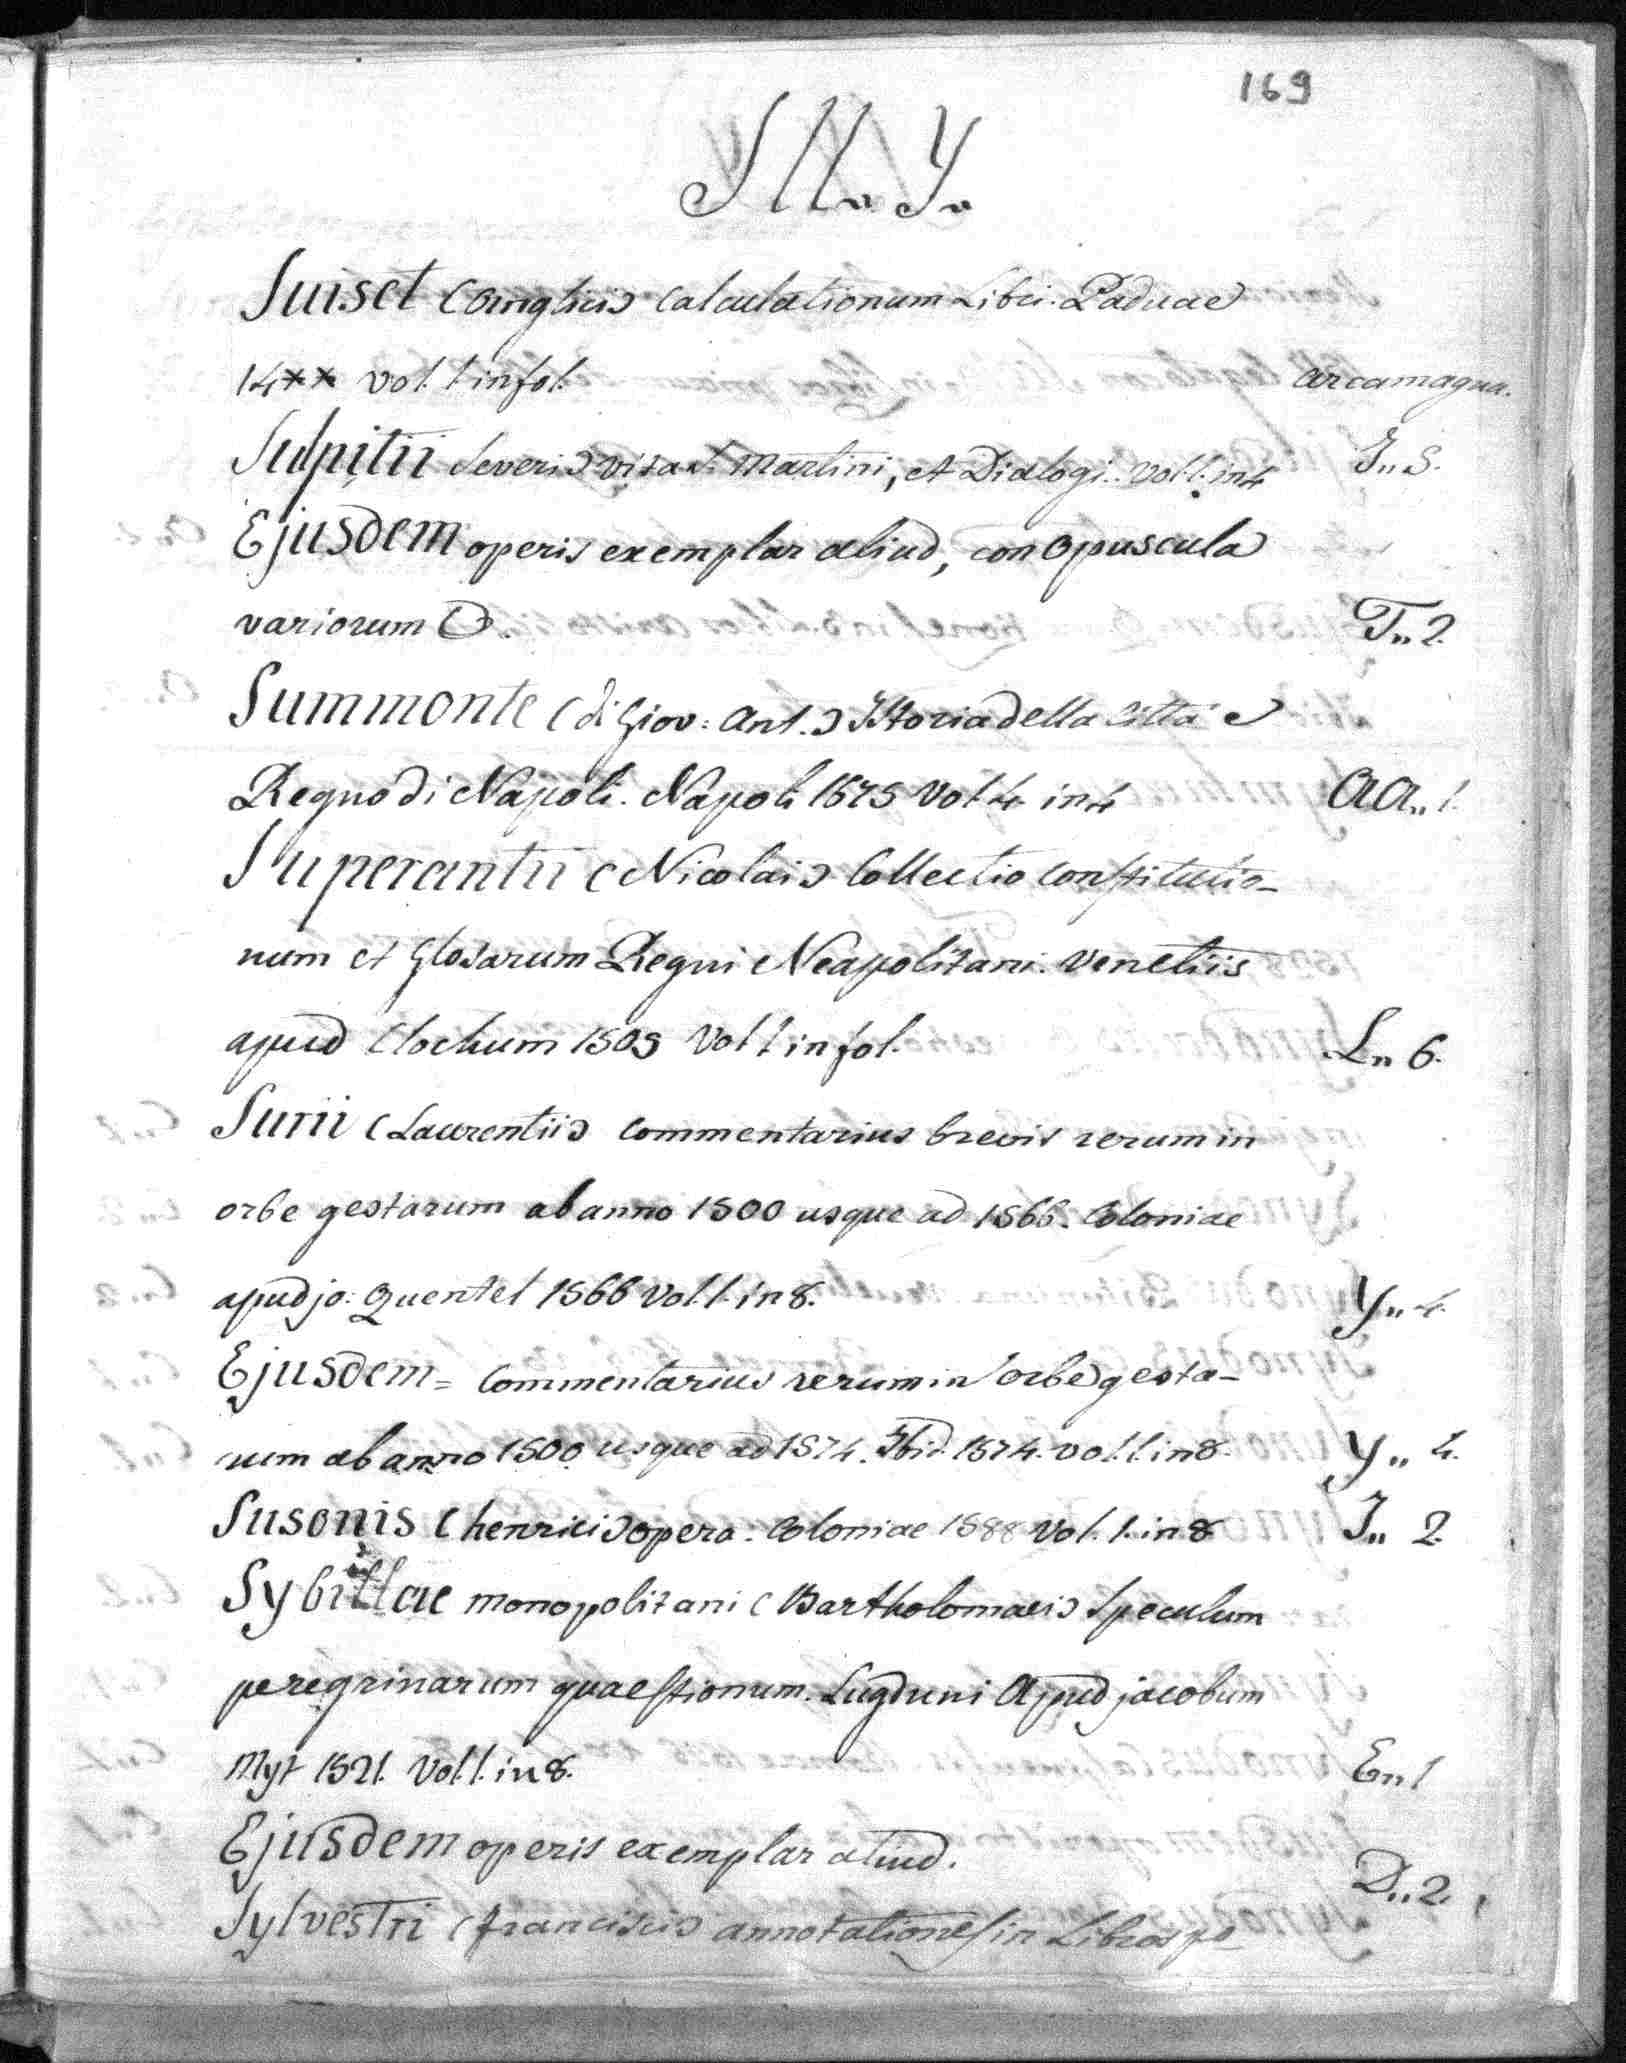 169
SU. Y.
Suiset (Anglici) Calculationum Libri. Paduae
14** vol. 1 in fol. arcamagna.
Sulpitii Severi) vita S. Martini, et Dialogi. vol. 1. in 4 I,, 5.
Ejusdem operis exemplar aliud, con Opuscula
variorum T,, 2.
Summonte (di Giov: Ant.) Istoria della Città e
Regno di Napoli. Napoli 1675 Vol 4 in 4 AA,, 1.
Superantii (Nicolai) Collectio constitutio-
num et Glosarum Regni Neapolitani. Venetiis
apud Clochum 1509 Vol 1 in fol. L,, 6.
Surii (Laurentii) Commentarius brevis rerum in
orbe gestarum ab anno 1500 usque ad 1566. Coloniae
apud jo: Quentel 1566 Vol. 1. in 8. Y,, 4.
Ejusdem = Commentarius rerum in orbe gesta-
rum ab anno 1500 usque ad 1574. Ibid. 1574. vol. 1. in 8. Y,, 4.
Susonis (henrici) opera. Coloniae 1588 Vol. 1. in 8 I,, 2.
Sybillae monopolitani (Bartholomaei) Speculum
peregrinarum quaestionum. Lugduni Apud jacobum
Myt 1521. Vol. 1. in 8. E,, 1
Ejusdem operis exemplar aliud. D,, 2.
Sylvestri (francisci) annotationes in Libros po